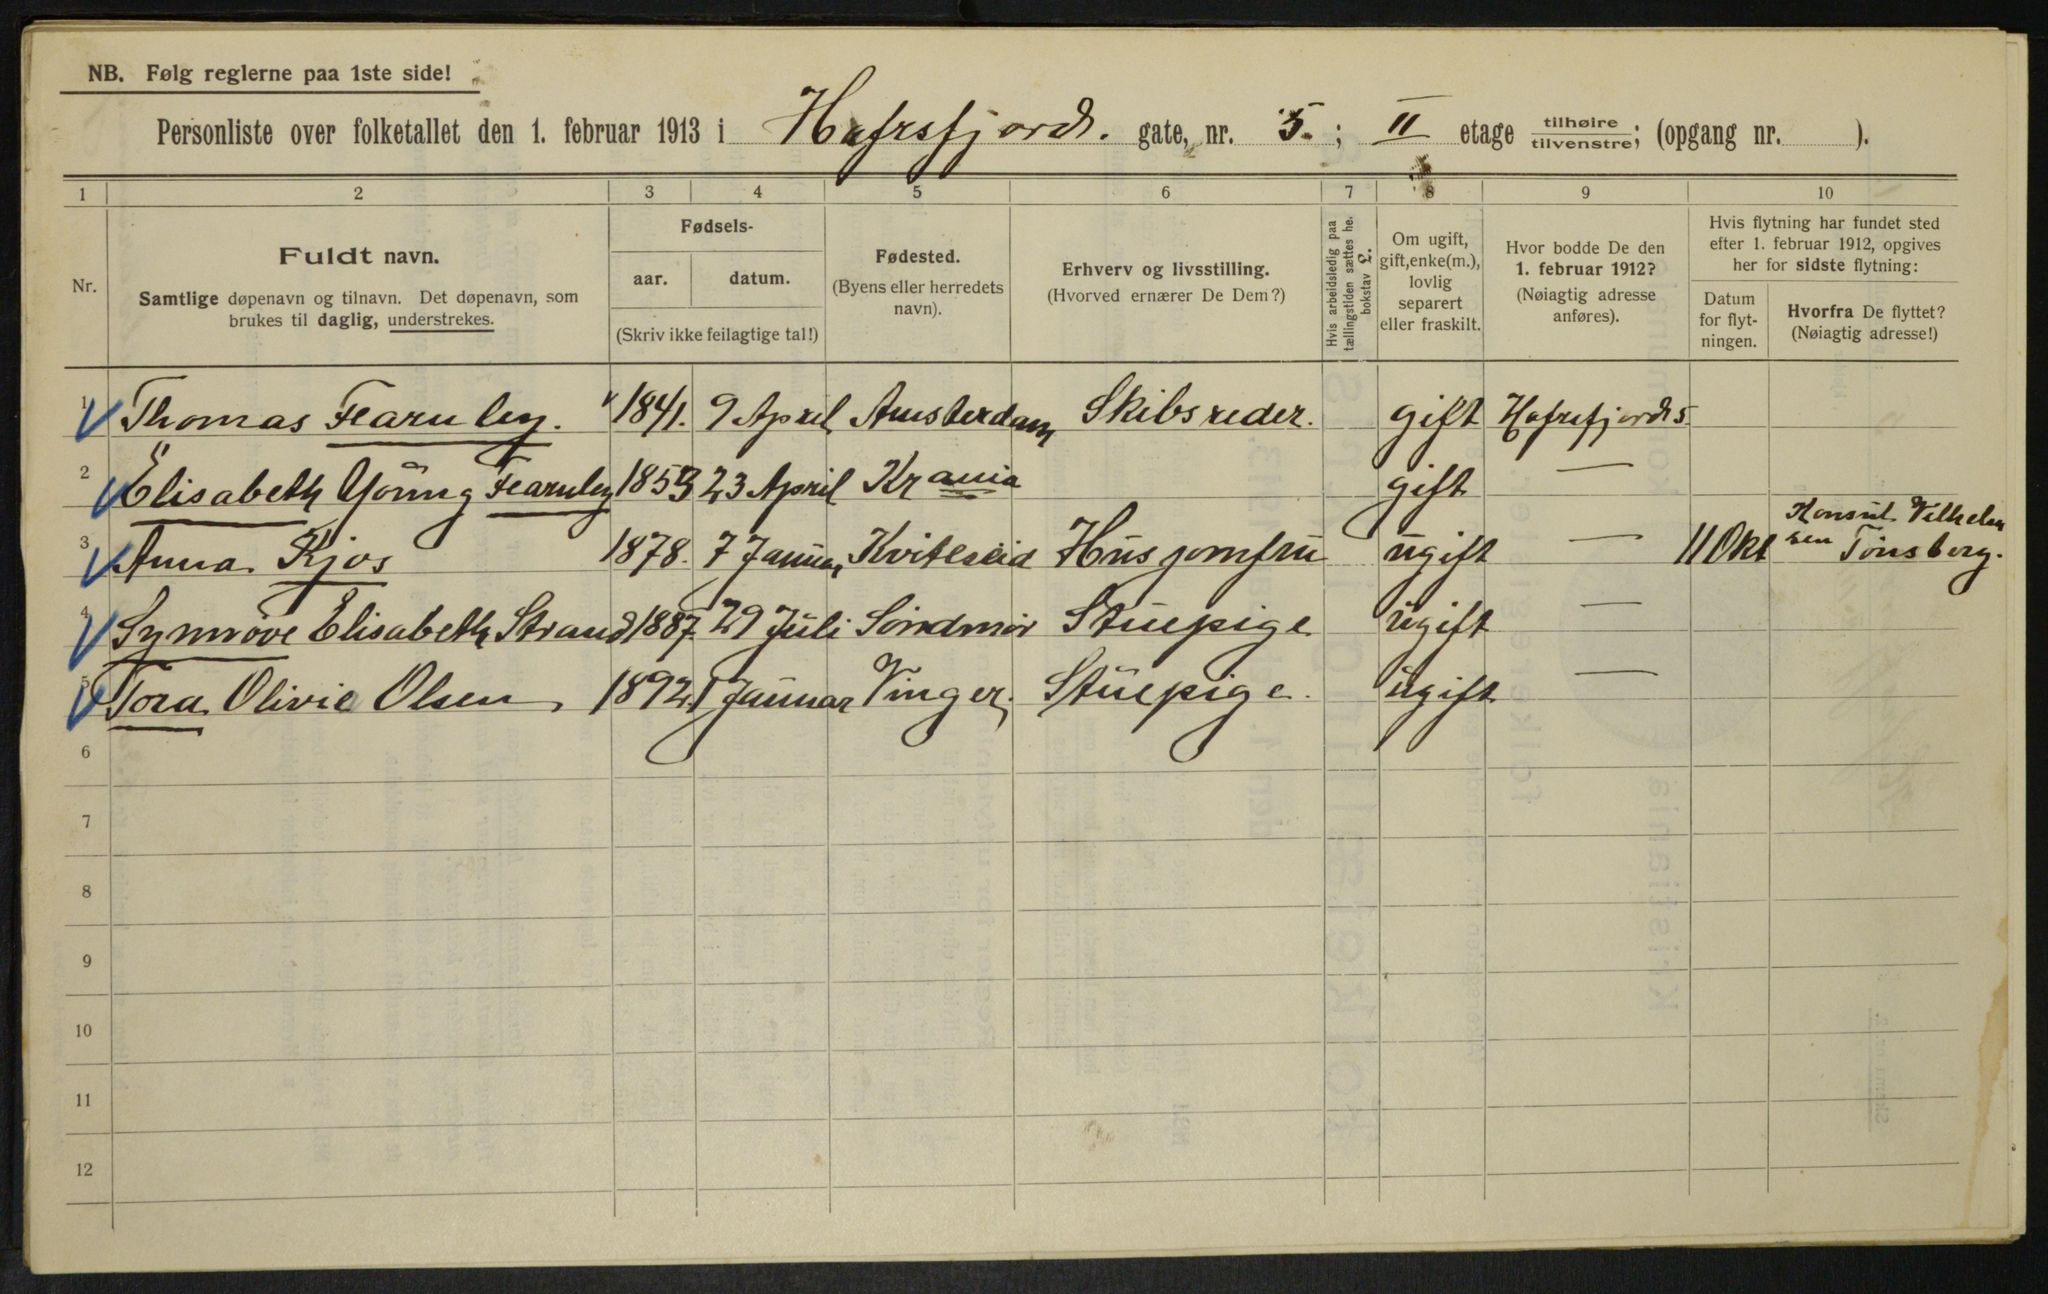 NB. Følg reglerne paa 1ste side!
Personliste over folketallet den 1. februar 1913 i Hafrsfjords. gate, nr. 5. ; II etage tilhøire/tilvenstre; (opgang nr. ).
1 2 3 4 5 6 7 8 9 10
Nr.
Fuldt navn.
Samtlige døpenavn og tilnavn. Det døpenavn, som
brukes til daglig, understrekes.
Fødsels-
aar. datum.
(Skriv ikke feilagtige tal!)
Fødested.
(Byens eller herredets
navn).
Erhverv og livsstilling.
(Hvorved ernærer De Dem?)
Hvis arbeidsledig paa
tællingstiden sættes her
bokstav L.
Om ugift,
gift, enke(m.),
lovlig
separert
eller fraskilt.
Hvor bodde De den
1. februar 1912?
(Nøiagtig adresse
anføres).
Hvis flytning har fundet sted
efter 1. februar 1912, opgives
her for sidste flytning:
Datum
for flyt-
ningen.
Hvorfra De flyttet?
(Nøiagtig adresse!)
1 Thomas Fearnley. 1841. 9 April Amsterdam Skibsreder. gift Hafrsfjords 5.
2 Elisabeth Young Fearnley 1853 23 April Krania gift —
3 Anna Kjos 1878. 7 Januar Kviteseid Husjomfru ugift — 11 Okt Konsul Vilhelm
sen Tönsberg.
4 Synnöve Elisabeth Strand 1887 29 Juli Söndmör Stuepige ugift —
5 Tora Olivie Olsen 1892. 1 Januar Vinger. Stuepige. ugift —
6
7
8
9
10
11
12